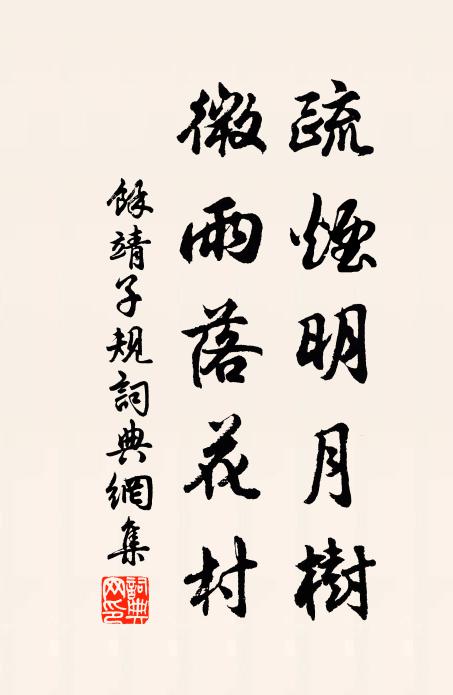 疏煙明月樹
微雨落花村
餘靖子規詞典網集
詞典网印